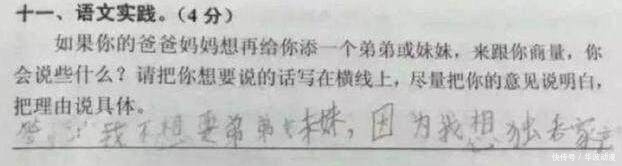 十一、语文实践。(4分)
如果你的爸爸妈妈想再给你添一个弟弟或妹妹，来跟你商量，你
会说些什么？请把你想要说的话写在横线上，尽量把你的意见说明白，
把理由说具体。
答：我不想要弟弟 妹妹，因为我想独吞家产
快传号/华波动漫